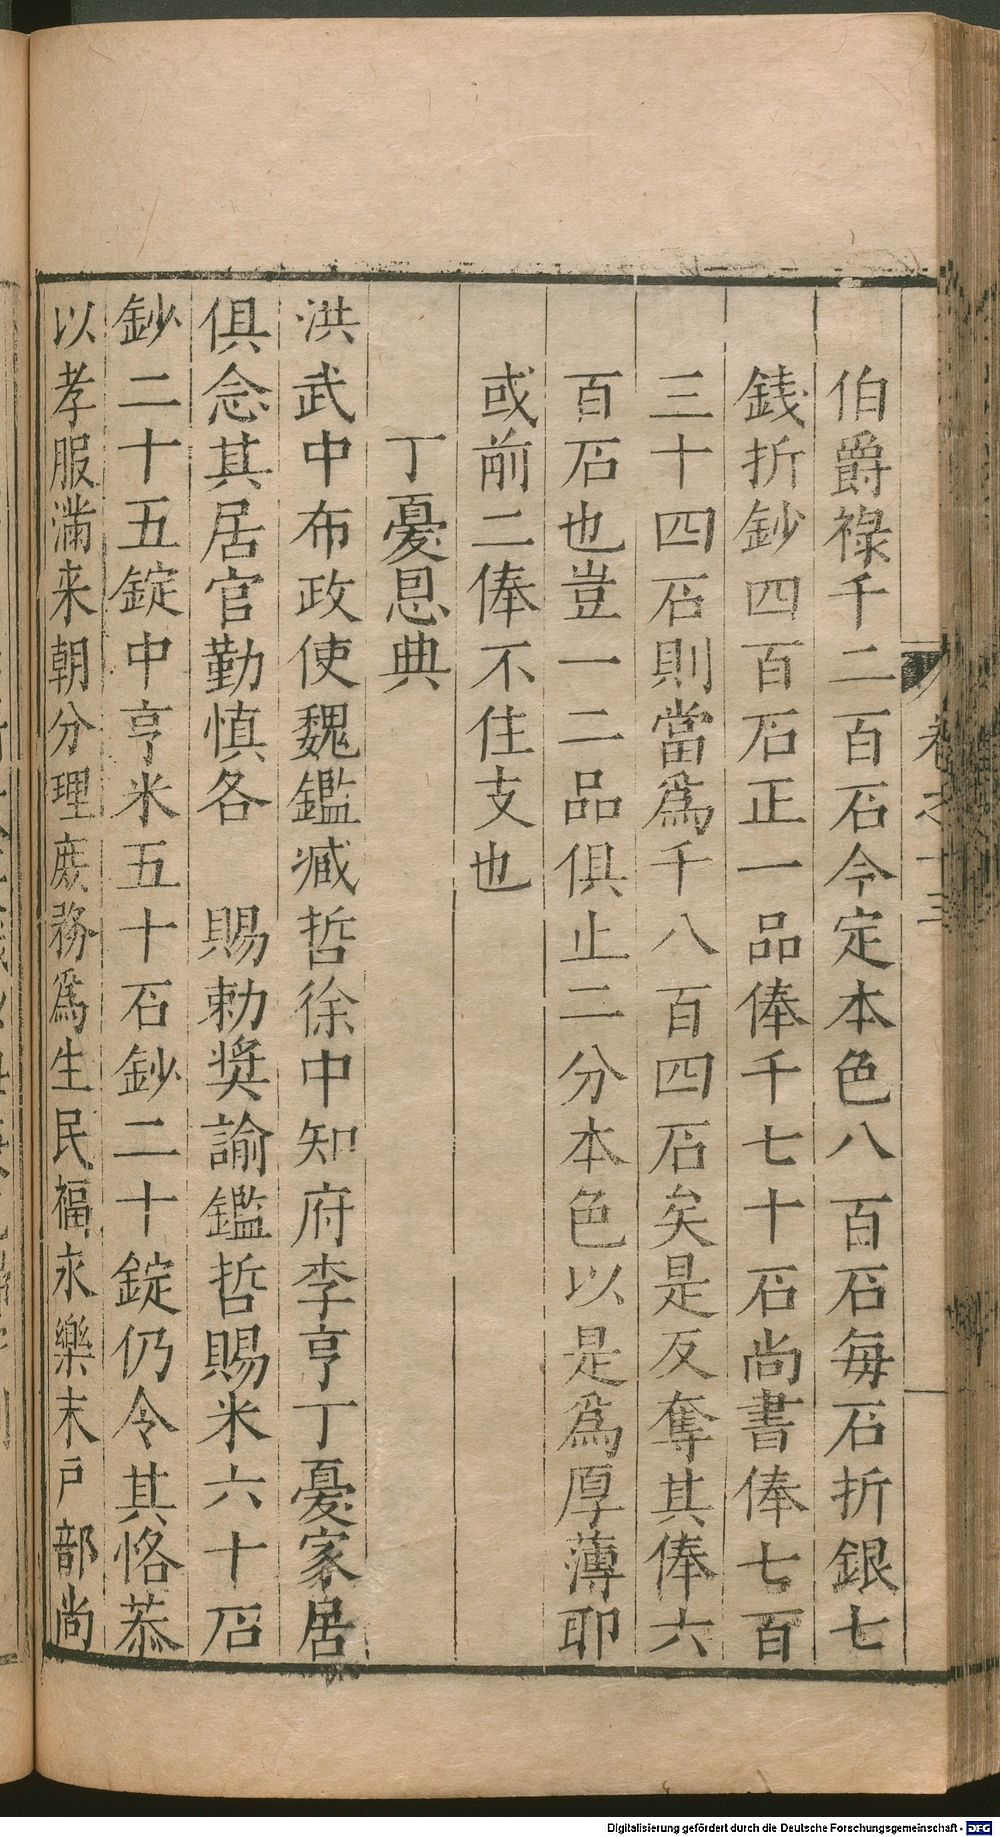 伯爵祿千二百石今定本色八百石每石折銀七
錢折鈔四百石正一品俸千七十石尚書俸七百
三十四石則當爲千八百四石矣是反奪其俸六
百石也豈一二品俱止二分本色以是爲厚薄耶
或前二俸不住支也
丁憂恩典
洪武中布政使魏鑑臧哲徐中知府李亨丁憂家居
俱念其居官勤慎各 賜勅奬諭鑑哲賜米六十石
鈔二十五錠中亨米五十石鈔二十錠仍令其恪恭
以孝服滿来朝分理庶務爲生民福永樂末户部尚
卷之十三
Digitalisierung gefördert durch die Deutsche Forschungsgemeinschaft - DFG